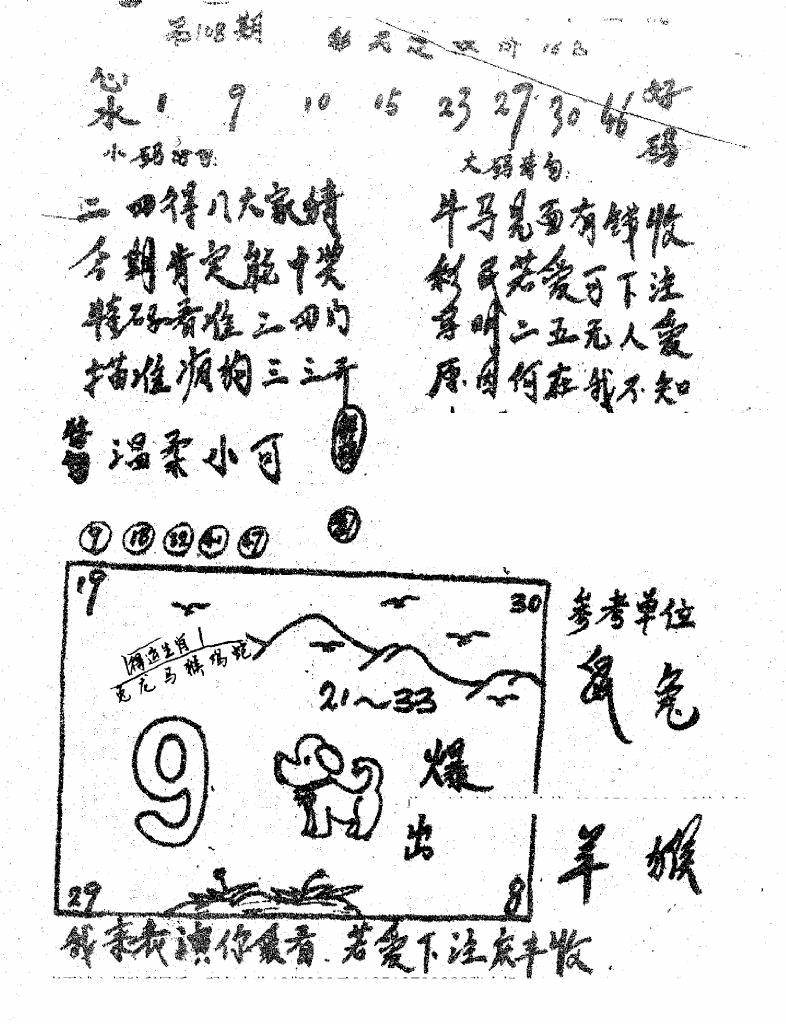 第108期
心水 1 9 10 15 23 27 30 46 好码
小码诗句
大码诗句
二四得八大家猜
今期肯定能中奖
特码看准三四门
描准咱的三三开
牛马见面有钱收
彩民若爱可下注
单双二五无人爱
原因何在我不知
特句 温柔小可
9 18 32 41 47
19 30
相逢生肖
兔龙马猴鸡蛇
21~33
9
爆出
29 8
参考单位
鼠兔
羊猴
我来表演你爱看 若爱下注庆丰收